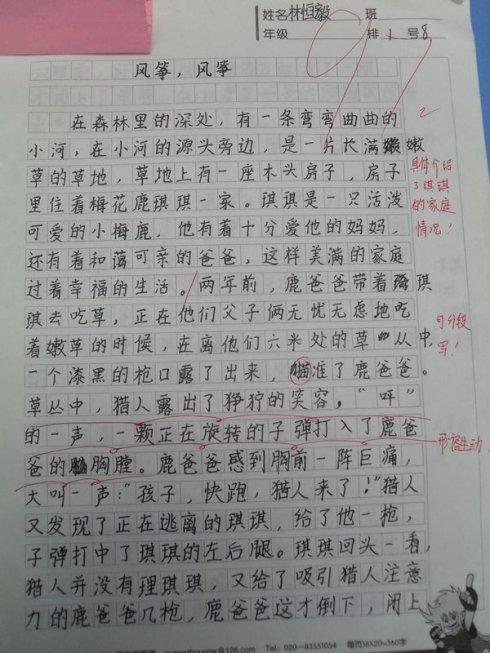 姓名林恒毅 班
年级 排1号8
风筝，风筝
在森林里的深处，有一条弯弯曲曲的
小河，在小河的源头旁边，是一片长满嫩
草的草地，草地上有一座木头房子，房子
里住着梅花鹿琪琪一家。琪琪是一只活泼
可爱的小梅鹿，他有着十分爱他的妈妈，
还有着和蔼可亲的爸爸，这样美满的家庭
过着幸福的生活。两年前，鹿爸爸带着琪
琪去吃草，正在他们父子俩无忧无虑地吃
着嫩草的时候，在离他们六米处的草从中，
一个漆黑的枪口露了出来，瞄准了鹿爸爸。
草丛中，猎人露出了狰狞的笑容，“呯”
的一声，一颗正在旋转的子弹打入了鹿爸
爸的胸膛。鹿爸爸感到胸前一阵巨痛，
大叫一声：“孩子，快跑，猎人来了！”猎人
又发现了正在逃离的琪琪，给了他一枪，
子弹打中了琪琪的左后腿。琪琪回头一看，
猎人并没有理琪琪，又给了吸引猎人注意
力的鹿爸爸几枪，鹿爸爸这才倒下，闭上
具体介绍
了琪琪
的家庭
情况！
可分段
写！
形容生动
@126.com Tel: 020—83551054 每页18X20=360字